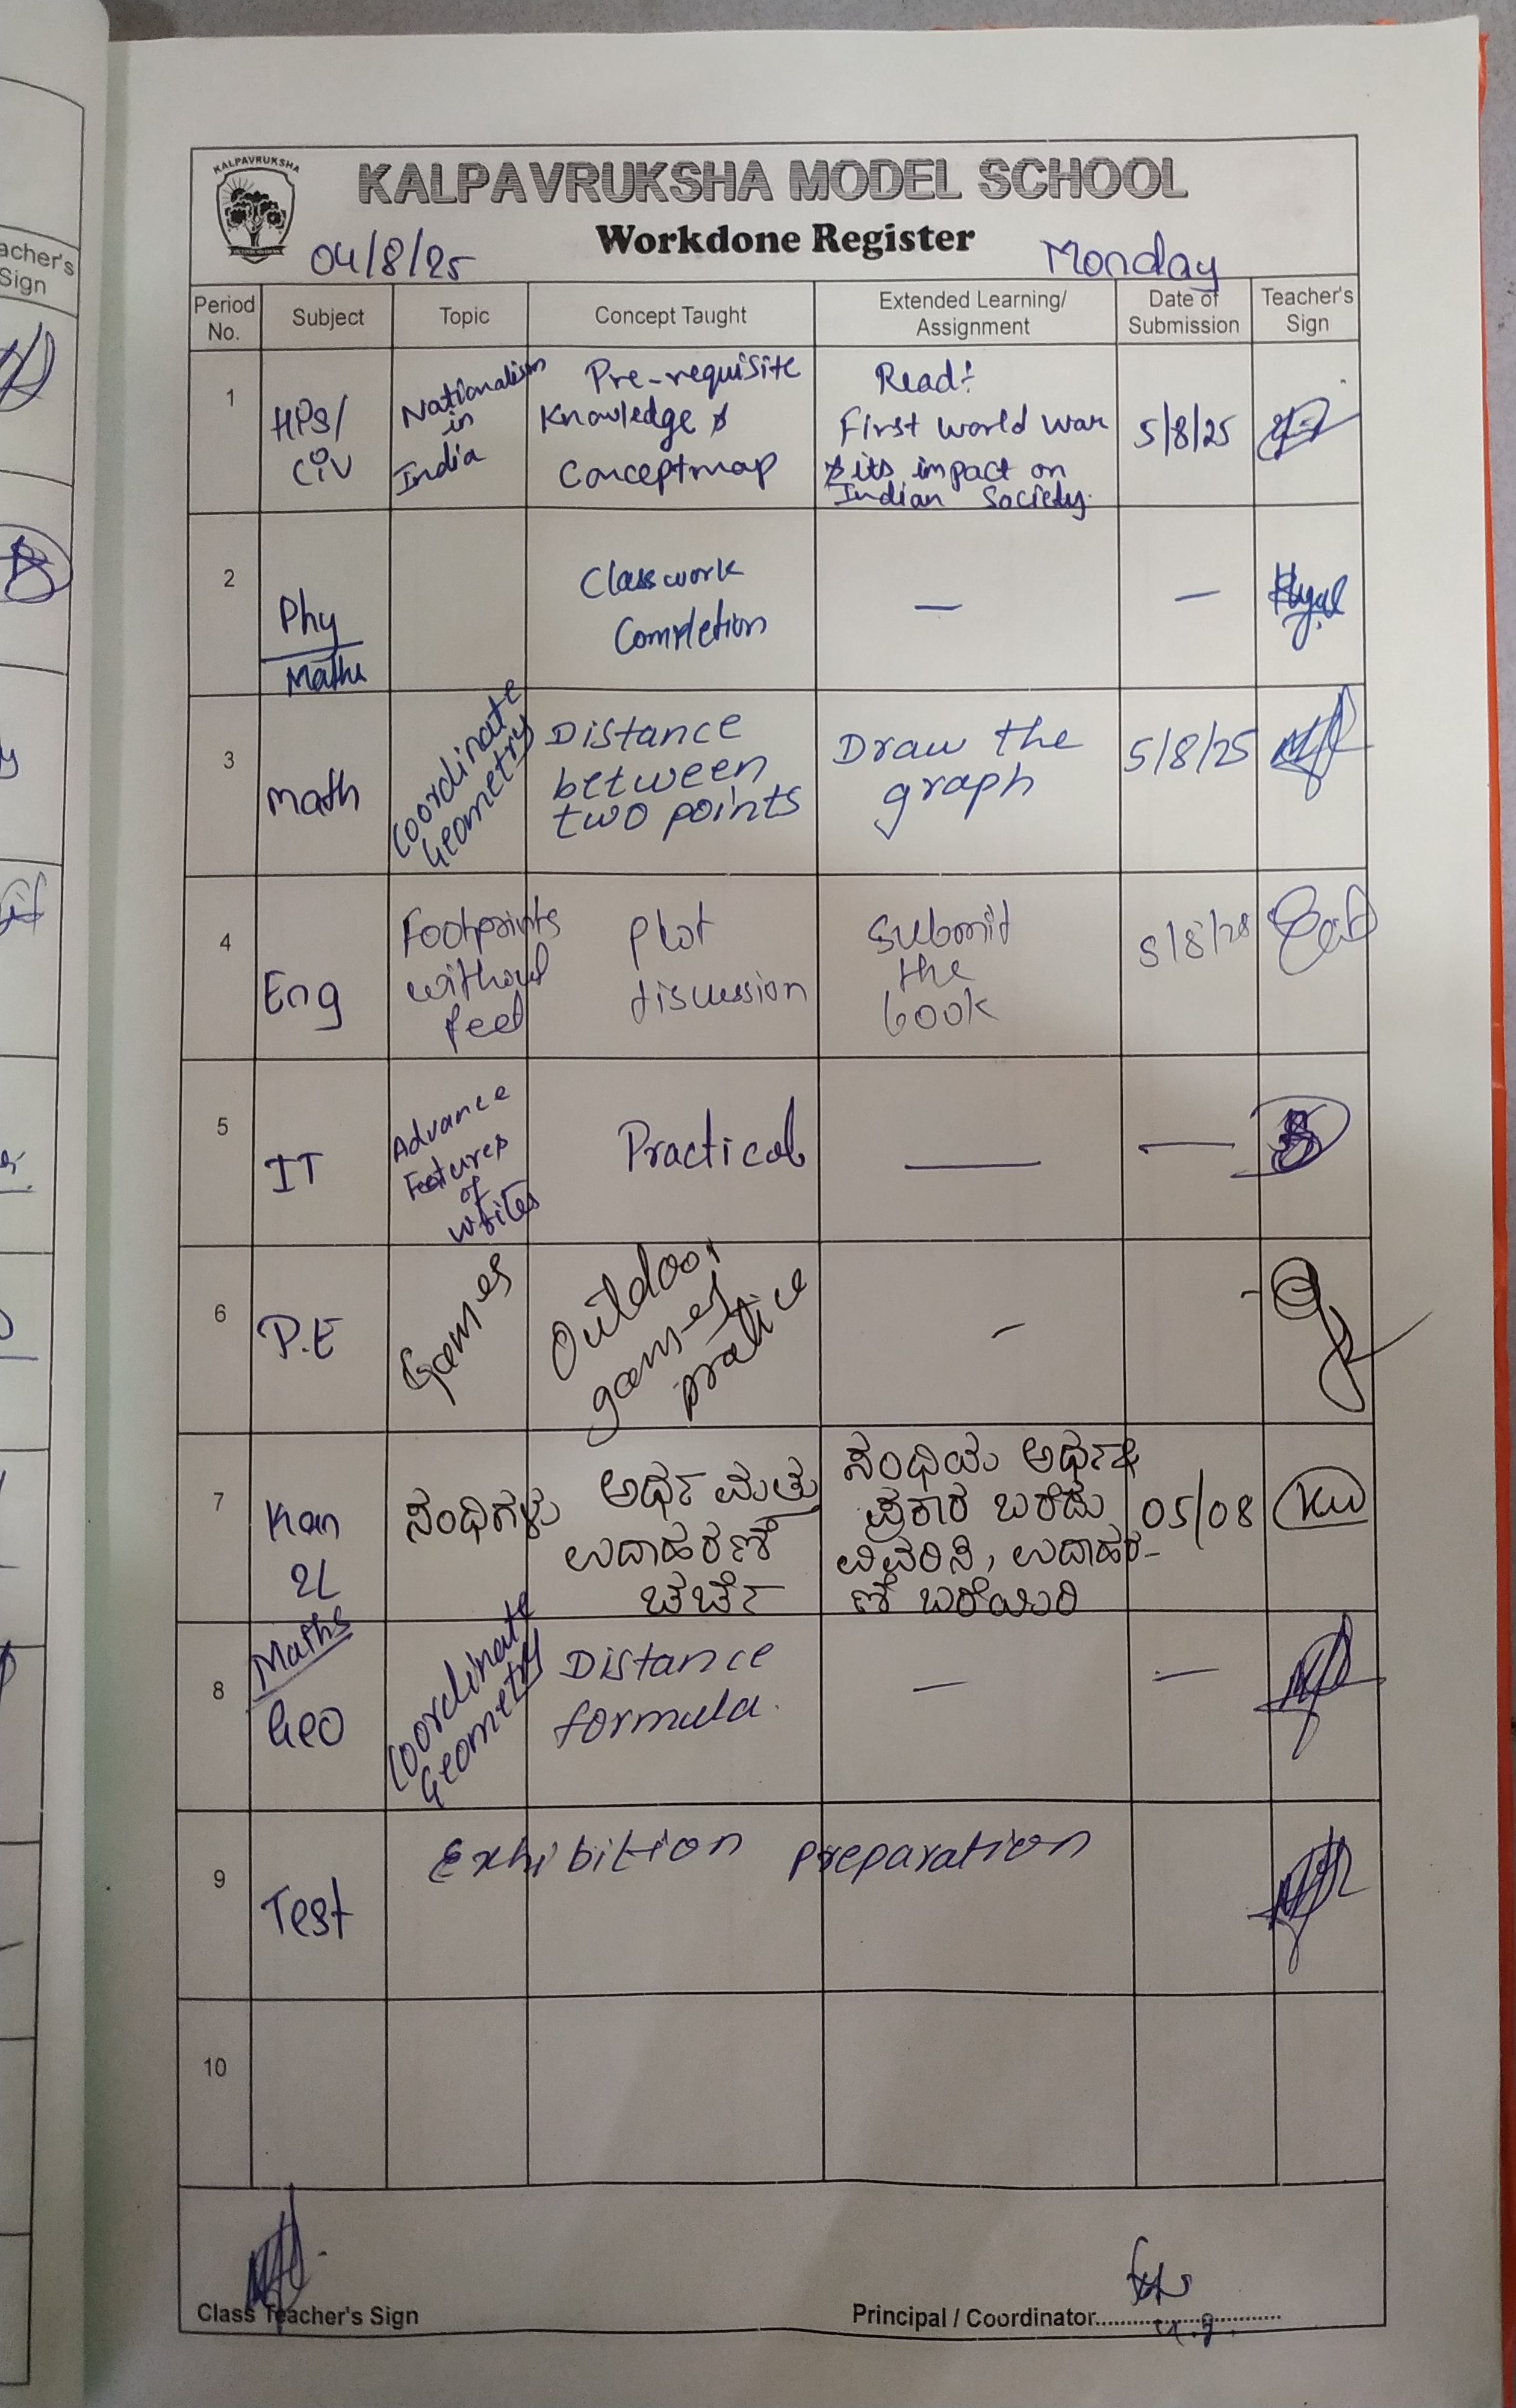 KALPAVRUKSHA
KALPAVRUKSHA MODEL SCHOOL
Workdone Register
04/8/25 Monday
acher's
Sign
Period No. Subject Topic Concept Taught Extended Learning/ Assignment Date of Submission Teacher's Sign
1 HPS/ CIV Nationalism in India Pre-requisite Knowledge & Conceptmap Read: First world war & its impact on Indian Society. 5/8/25
2 Phy Maths Classwork Completion — —
3 Math Coordinate Geometry Distance between two points Draw the graph 5/8/25
4 Eng Footprints without feet plot discussion Submit the book 5/8/25
5 IT Advance Features of Writer Practical — —
6 P.E Games Outdoor games pratice —
7 Kan 2L ಸಂಧಿಗಳು ಅರ್ಥ ಮತ್ತು ಉದಾಹರಣೆ ಚರ್ಚೆ ಸಂಧಿಯ ಅರ್ಥ & ಪ್ರಕಾರ ಬರೆದು ವಿವರಿಸಿ, ಉದಾಹರ- ಣೆ ಬರೆಯಿರಿ 05/08
8 Maths Geo Coordinate Geometry Distance formula. — —
9 Test Exhibition preparation
10
Class Teacher's Sign Principal / Coordinator